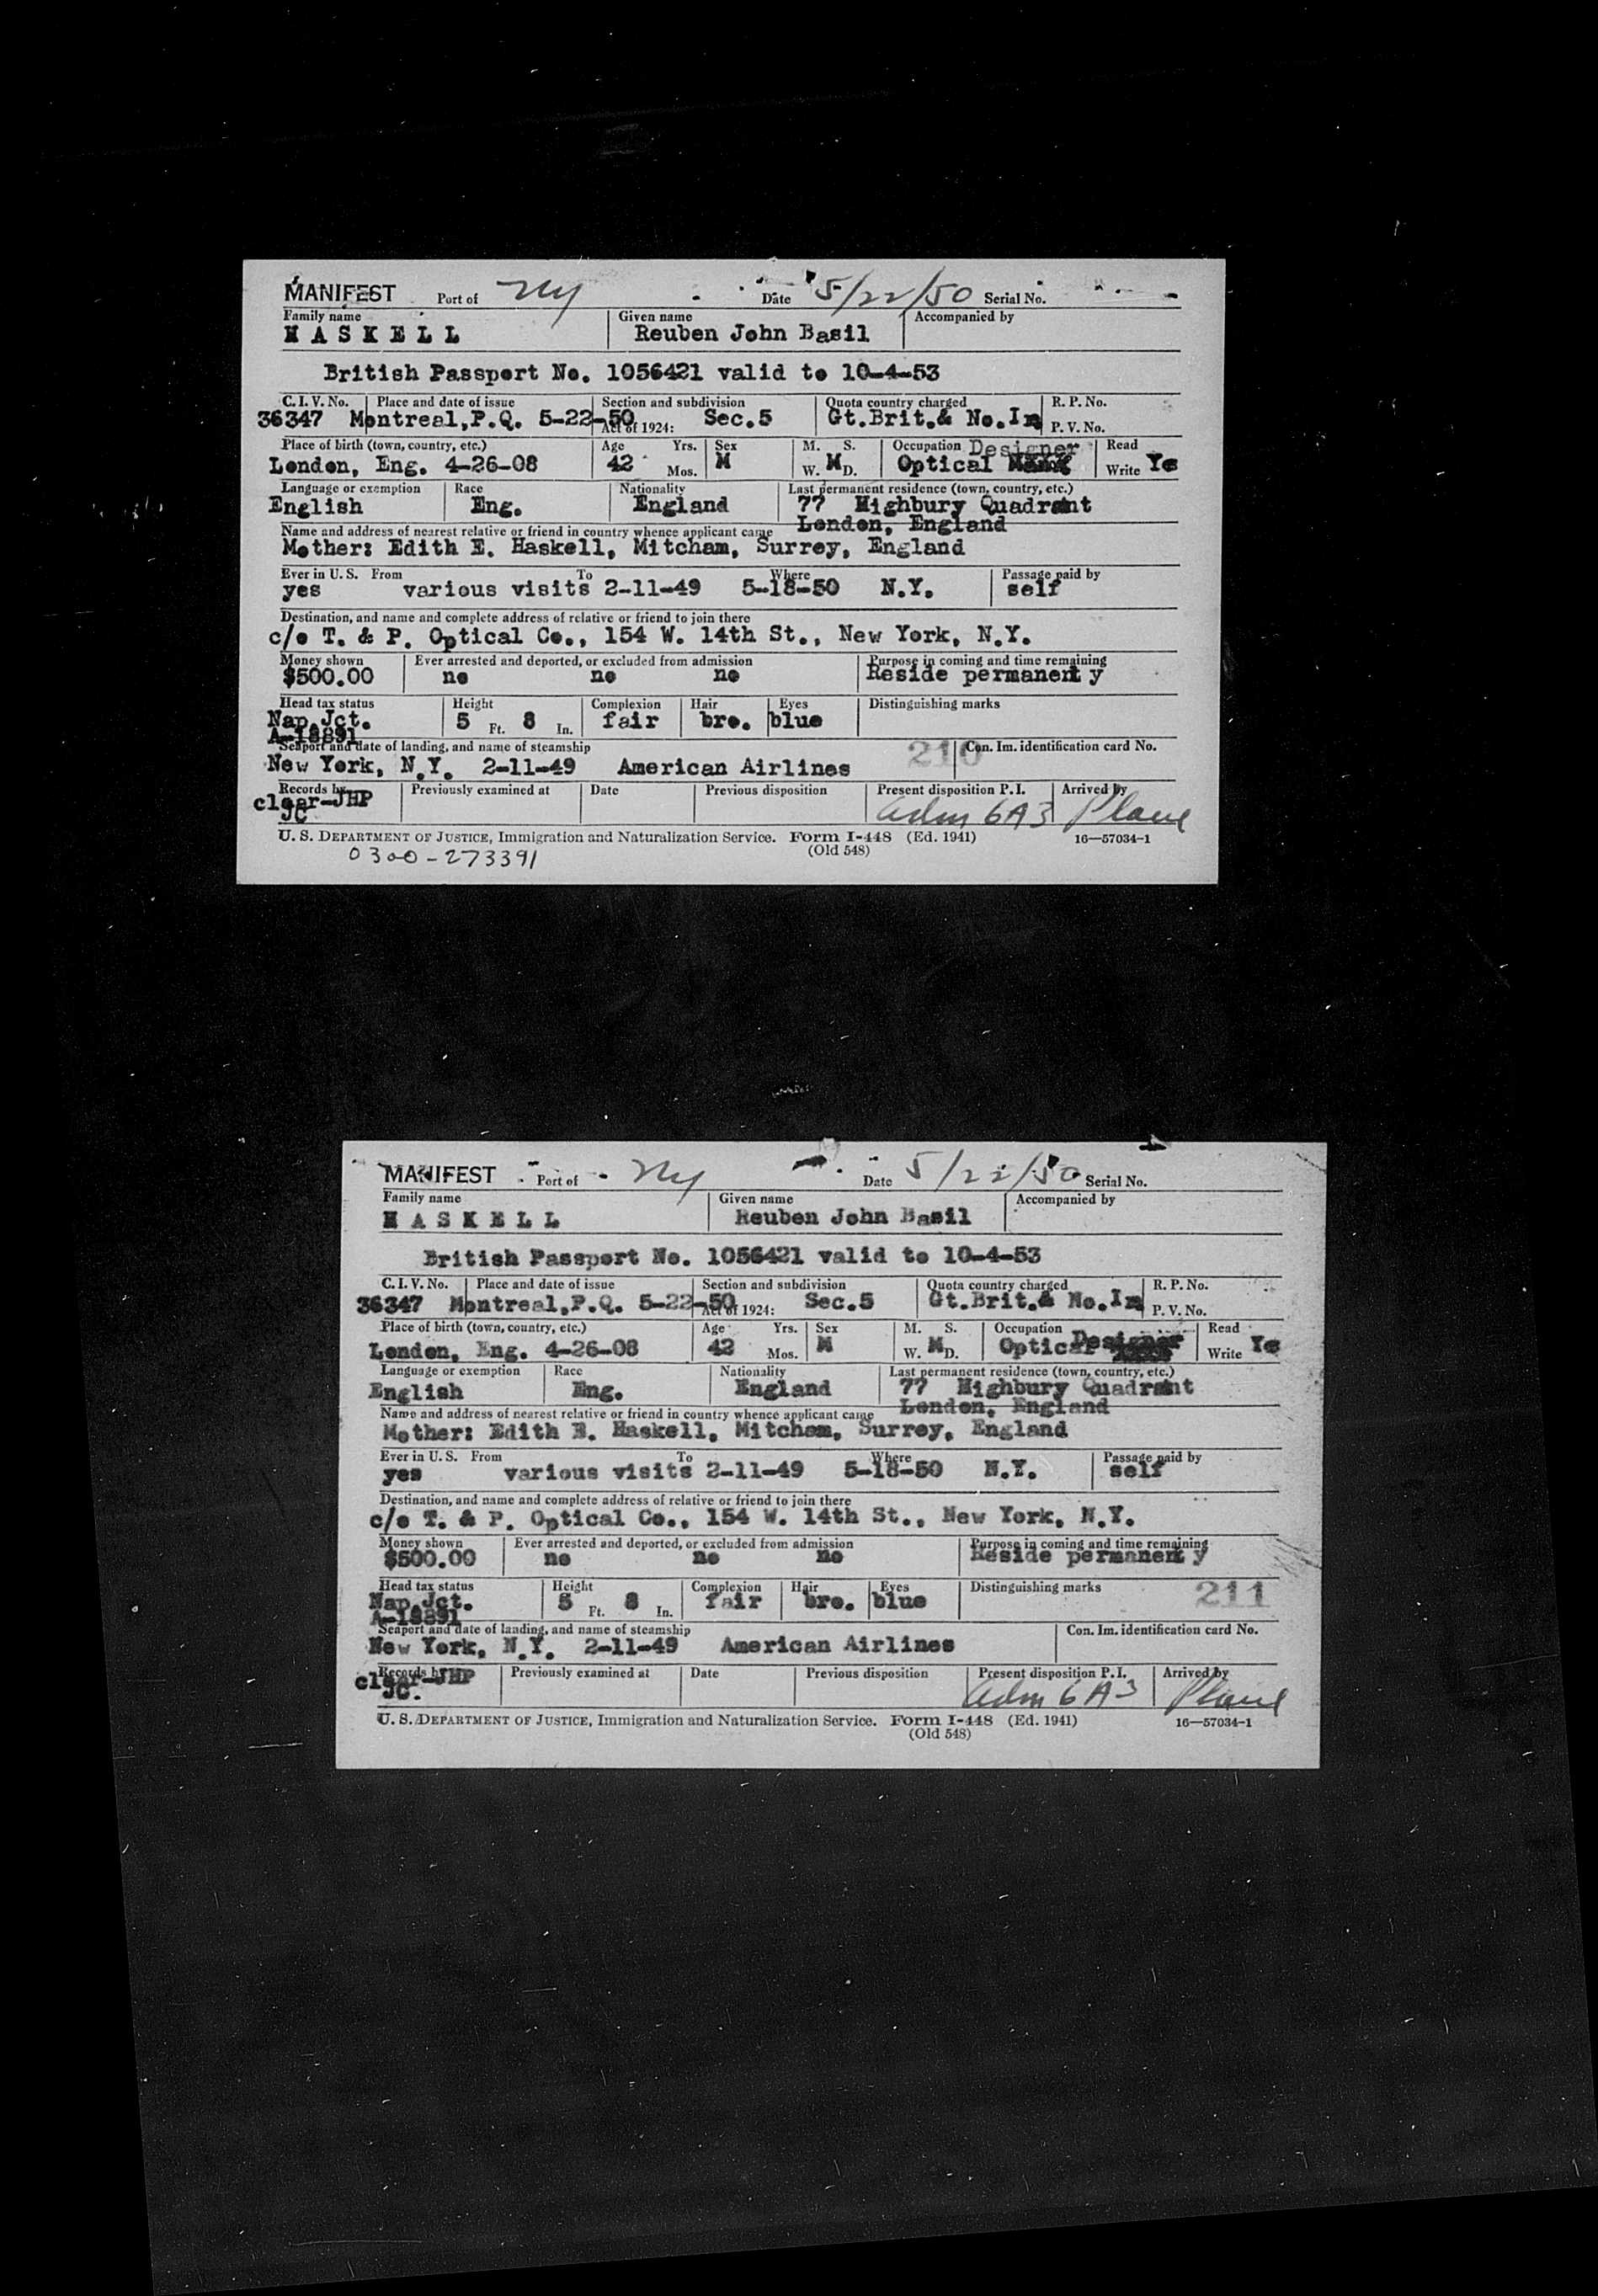 MANIFEST Port of NY Date 5/22/50 Serial No.
Family name Given name Accompanied by
HASKELL Reuben John Basil
British Passport No. 1056421 valid to 10-4-53
C. I. V. No. Place and date of issue Section and subdivision Quota country charged R. P. No.
36347 Montreal,P.Q. 5-22-50 Act of 1924: Sec.5 Gt.Brit.& No.Ir P. V. No.
Place of birth (town, country, etc.) Age Yrs. Sex M. S. Occupation Designer Read
London, Eng. 4-26-08 42 Mos. M W. M D. Optical Write Ye
Language or exemption Race Nationality Last permanent residence (town, country, etc.)
English Eng. England 77 Highbury Quadrant
London, England
Name and address of nearest relative or friend in country whence applicant came
Mother: Edith E. Haskell, Mitcham, Surrey, England
Ever in U. S. From To Where Passage paid by
yes various visits 2-11-49 5-18-50 N.Y. self
Destination, and name and complete address of relative or friend to join there
c/o T. & P. Optical Co., 154 W. 14th St., New York, N.Y.
Money shown Ever arrested and deported, or excluded from admission Purpose in coming and time remaining
$500.00 no no no Reside permanent y
Head tax status Height Complexion Hair Eyes Distinguishing marks
Nap.Jct. 5 Ft. 8 In. fair bro. blue
A-18891
Seaport and date of landing, and name of steamship 210 Con. Im. identification card No.
New York, N.Y. 2-11-49 American Airlines
Records by Previously examined at Date Previous disposition Present disposition P. I. Arrived by
clear-JHP adm 6A3 Plane
JC
U. S. DEPARTMENT OF JUSTICE, Immigration and Naturalization Service. Form I-448 (Ed. 1941) 16—57034-1
(Old 548)
0300-273391
MANIFEST Port of NY Date 5/22/50 Serial No.
Family name Given name Accompanied by
HASKELL Reuben John Basil
British Passport No. 1056421 valid to 10-4-53
C. I. V. No. Place and date of issue Section and subdivision Quota country charged R. P. No.
36347 Montreal,P.Q. 5-22-50 Act of 1924: Sec.5 Gt.Brit.& No.Ir P. V. No.
Place of birth (town, country, etc.) Age Yrs. Sex M. S. Occupation Designer Read
London, Eng. 4-26-08 42 Mos. M W. M D. Optical Write Ye
Language or exemption Race Nationality Last permanent residence (town, country, etc.)
English Eng. England 77 Highbury Quadrant
London, England
Name and address of nearest relative or friend in country whence applicant came
Mother: Edith E. Haskell, Mitcham, Surrey, England
Ever in U. S. From To Where Passage paid by
yes various visits 2-11-49 5-18-50 N.Y. self
Destination, and name and complete address of relative or friend to join there
c/o T. & P. Optical Co., 154 W. 14th St., New York, N.Y.
Money shown Ever arrested and deported, or excluded from admission Purpose in coming and time remaining
$500.00 no no no Reside permanent y
Head tax status Height Complexion Hair Eyes Distinguishing marks 211
Nap.Jct. 5 Ft. 8 In. fair bro. blue
A-18891
Seaport and date of landing, and name of steamship Con. Im. identification card No.
New York, N.Y. 2-11-49 American Airlines
Records by Previously examined at Date Previous disposition Present disposition P. I. Arrived by
clear-JHP adm 6A3 Plane
JC.
U. S. DEPARTMENT OF JUSTICE, Immigration and Naturalization Service. Form I-448 (Ed. 1941) 16—57034-1
(Old 548)